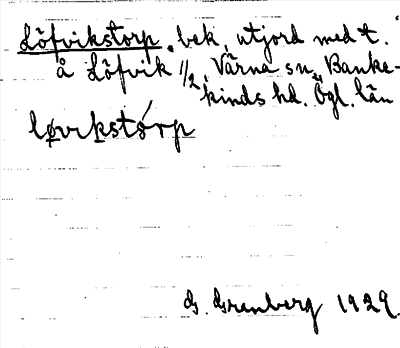 Löfvikstorp. bek. utjord med t.
å Löfvik 1/2, Värna sn, Banke-
kinds hd. Ögl. län
løvikstórp
G. Grenberg 1929.